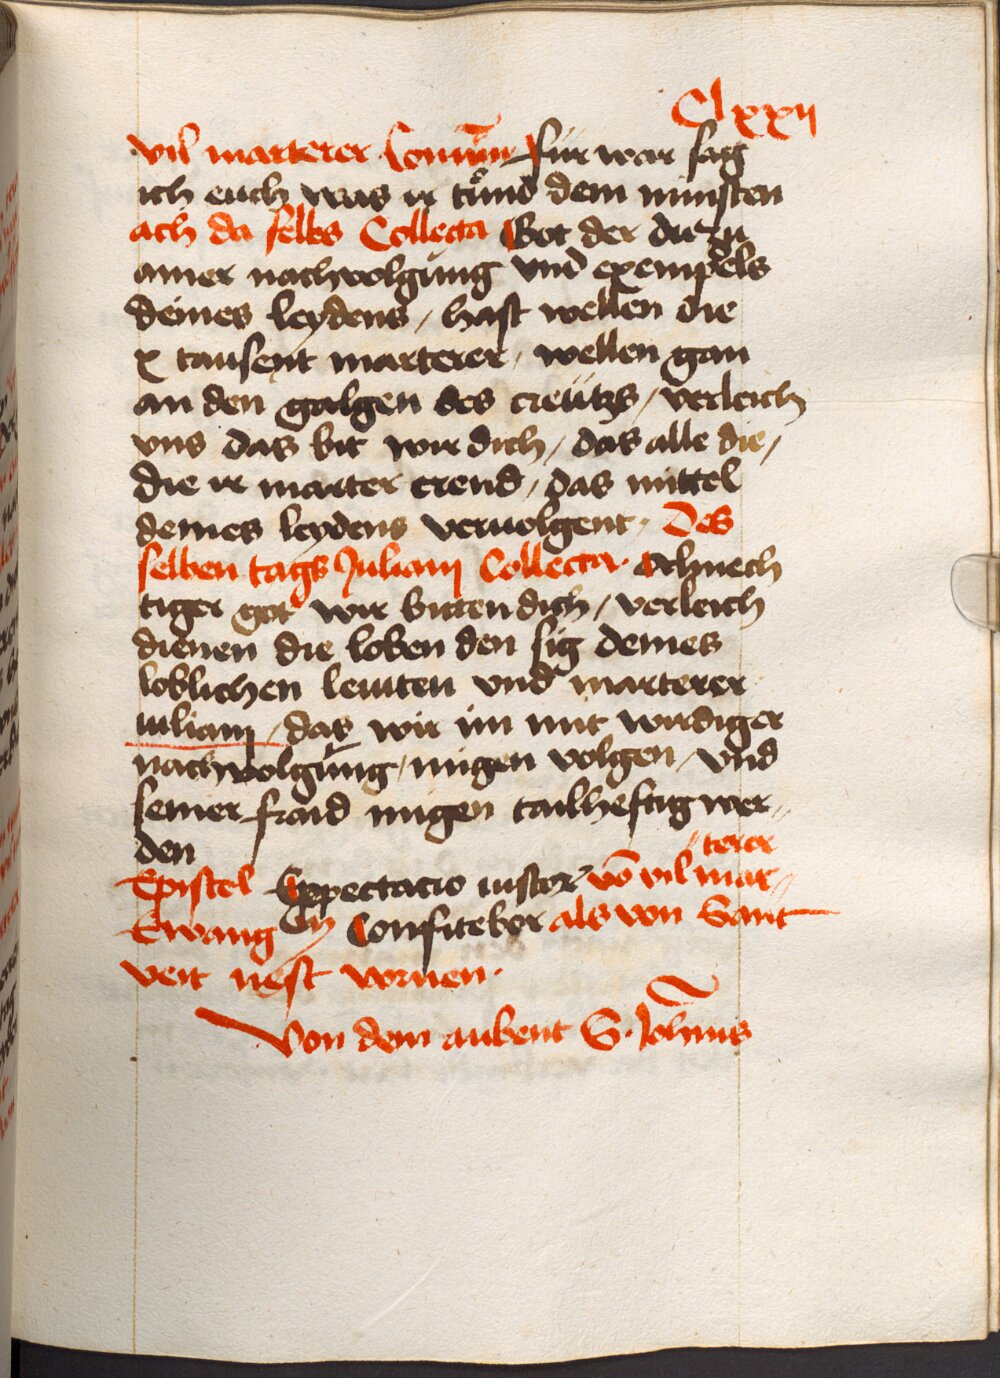 Clxxij
vil marterer Com̄un für war sag
ich euch was ir tůnd dem minsten
ach da selbs Collecta Got der du zu
ainer nachvolgung vnd exempels
deines leydens / hast wellen die
x tausent marterer / wellen gan
an den galgen des creützs / verleich
vns das bit wir dich / das alle die /
die ir marter erend / das mittel
deines leydens veruolgent · Des
selben tags Juliani Collecta · Almech
tiger got wir bitten dich / verleich
dienen die loben den sig deines
loblichen leuiten vnd marterer
iuliani / das wir im mit wirdiger
nachvolgung / migen volgen / vnd
seiner fraid migen tailhefftig wer //
den
Epistel Expectacio iustor̄ vō vil mar //
// terer
Ewang Confitebor als von Sant
veit nest vornen ·
Von dem aubent S · Johannis